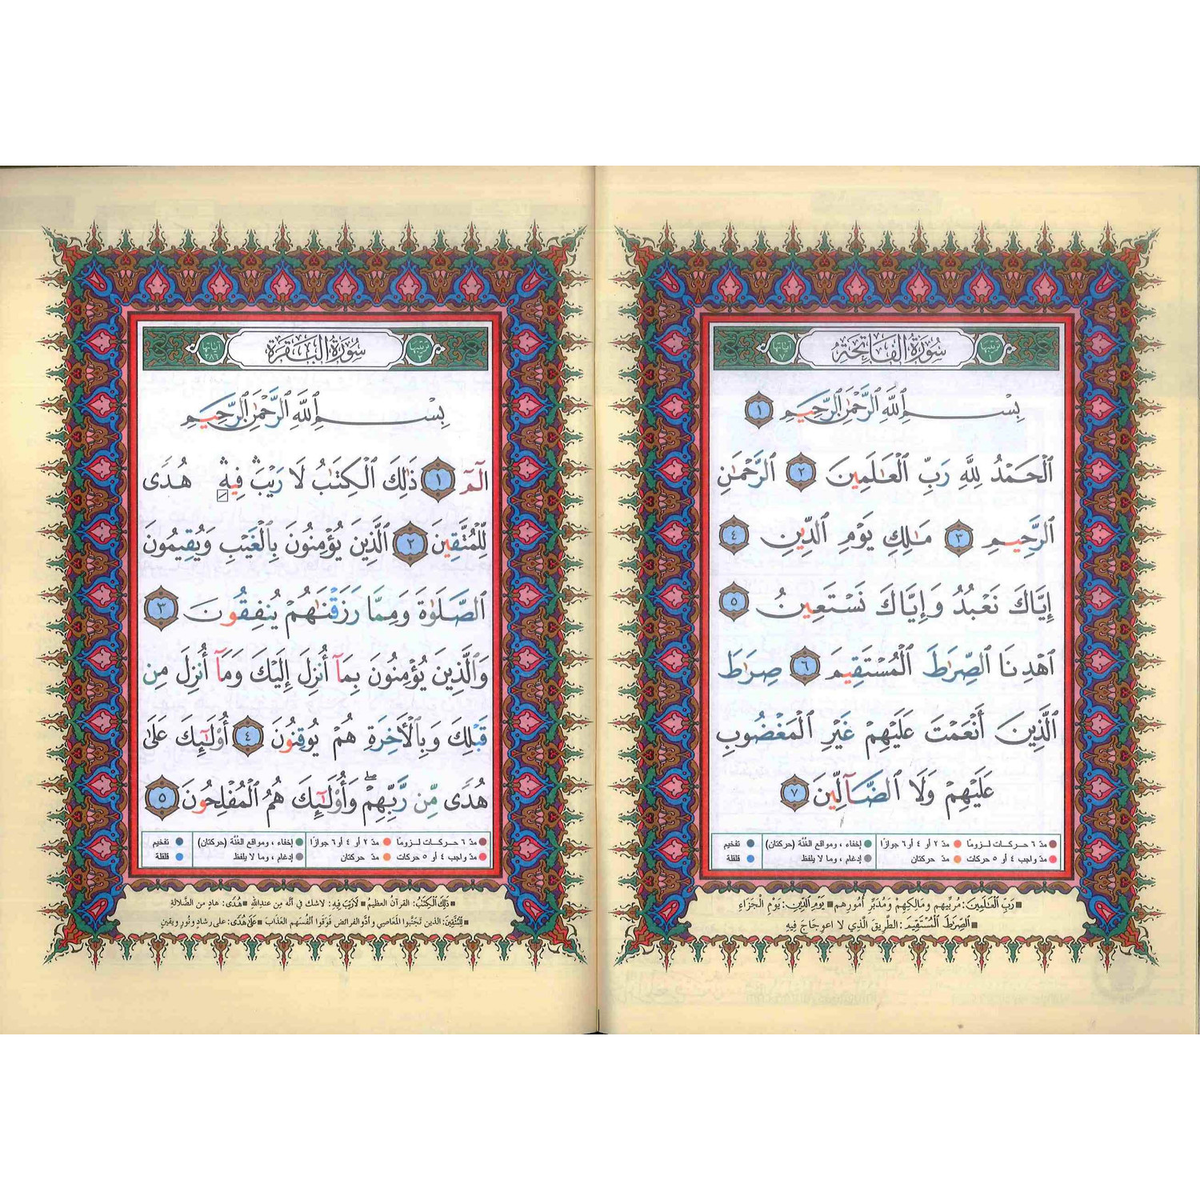 ترتيبها ١ سُورَةُ الفَاتِحَةِ آياتها ٧
بِسْمِ ٱللَّهِ ٱلرَّحْمَٰنِ ٱلرَّحِيمِ ١
ٱلْحَمْدُ لِلَّهِ رَبِّ ٱلْعَٰلَمِينَ ٢ ٱلرَّحْمَٰنِ
ٱلرَّحِيمِ ٣ مَٰلِكِ يَوْمِ ٱلدِّينِ ٤
إِيَّاكَ نَعْبُدُ وَإِيَّاكَ نَسْتَعِينُ ٥
ٱهْدِنَا ٱلصِّرَٰطَ ٱلْمُسْتَقِيمَ ٦ صِرَٰطَ
ٱلَّذِينَ أَنْعَمْتَ عَلَيْهِمْ غَيْرِ ٱلْمَغْضُوبِ
عَلَيْهِمْ وَلَا ٱلضَّآلِّينَ ٧
مدّ ٦ حركات لزومًا مدّ ٢ أو ٤ أو ٦ جوازًا إخفاء ، ومواقع الغُنَّة (حركتان) تفخيم
مدّ واجب ٤ أو ٥ حركات مدّ حركتان إدغام ، وما لا يلفظ قلقلة
■ رَبِّ الْعَالَمِينَ: مُربيهم ومَالكِهِم ومُدَبّر أمُورِهِم ■ يَوْمِ الدِّينِ: يَوْمِ الْجَزَاءِ
■ الصِّرَاطَ الْمُسْتَقِيمَ: الطَّرِيقَ الَّذِي لا اعوِجَاجَ فِيهِ
ترتيبها ٢ سُورَةُ البَقَرَةِ آياتها ٢٨٦
بِسْمِ ٱللَّهِ ٱلرَّحْمَٰنِ ٱلرَّحِيمِ
الٓمٓ ١ ذَٰلِكَ ٱلْكِتَٰبُ لَا رَيْبَ ۛ فِيهِ ۛ هُدًى
لِّلْمُتَّقِينَ ٢ ٱلَّذِينَ يُؤْمِنُونَ بِٱلْغَيْبِ وَيُقِيمُونَ
ٱلصَّلَوٰةَ وَمِمَّا رَزَقْنَٰهُمْ يُنفِقُونَ ٣
وَٱلَّذِينَ يُؤْمِنُونَ بِمَآ أُنزِلَ إِلَيْكَ وَمَآ أُنزِلَ مِن
قَبْلِكَ وَبِٱلْأَخِرَةِ هُمْ يُوقِنُونَ ٤ أُوْلَٰٓئِكَ عَلَىٰ
هُدًى مِّن رَّبِّهِمْ ۖ وَأُوْلَٰٓئِكَ هُمُ ٱلْمُفْلِحُونَ ٥
مدّ ٦ حركات لزومًا مدّ ٢ أو ٤ أو ٦ جوازًا إخفاء ، ومواقع الغُنَّة (حركتان) تفخيم
مدّ واجب ٤ أو ٥ حركات مدّ حركتان إدغام ، وما لا يلفظ قلقلة
■ ذَلِكَ الْكِتَابُ: القرآن العظيم ■ لَا رَيْبَ فِيهِ: لا شك في أنَّه من عند الله ■ هُدًى: هادٍ من الضّلالة
■ لِلْمُتَّقِينَ: الذين تجنّبوا المعاصي وأدَّوا الفرائض فوَقوا أنفسهم العذاب ■ عَلَى هُدًى: على رشاد ونُور ويقين